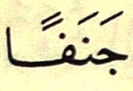 جَنَفًا